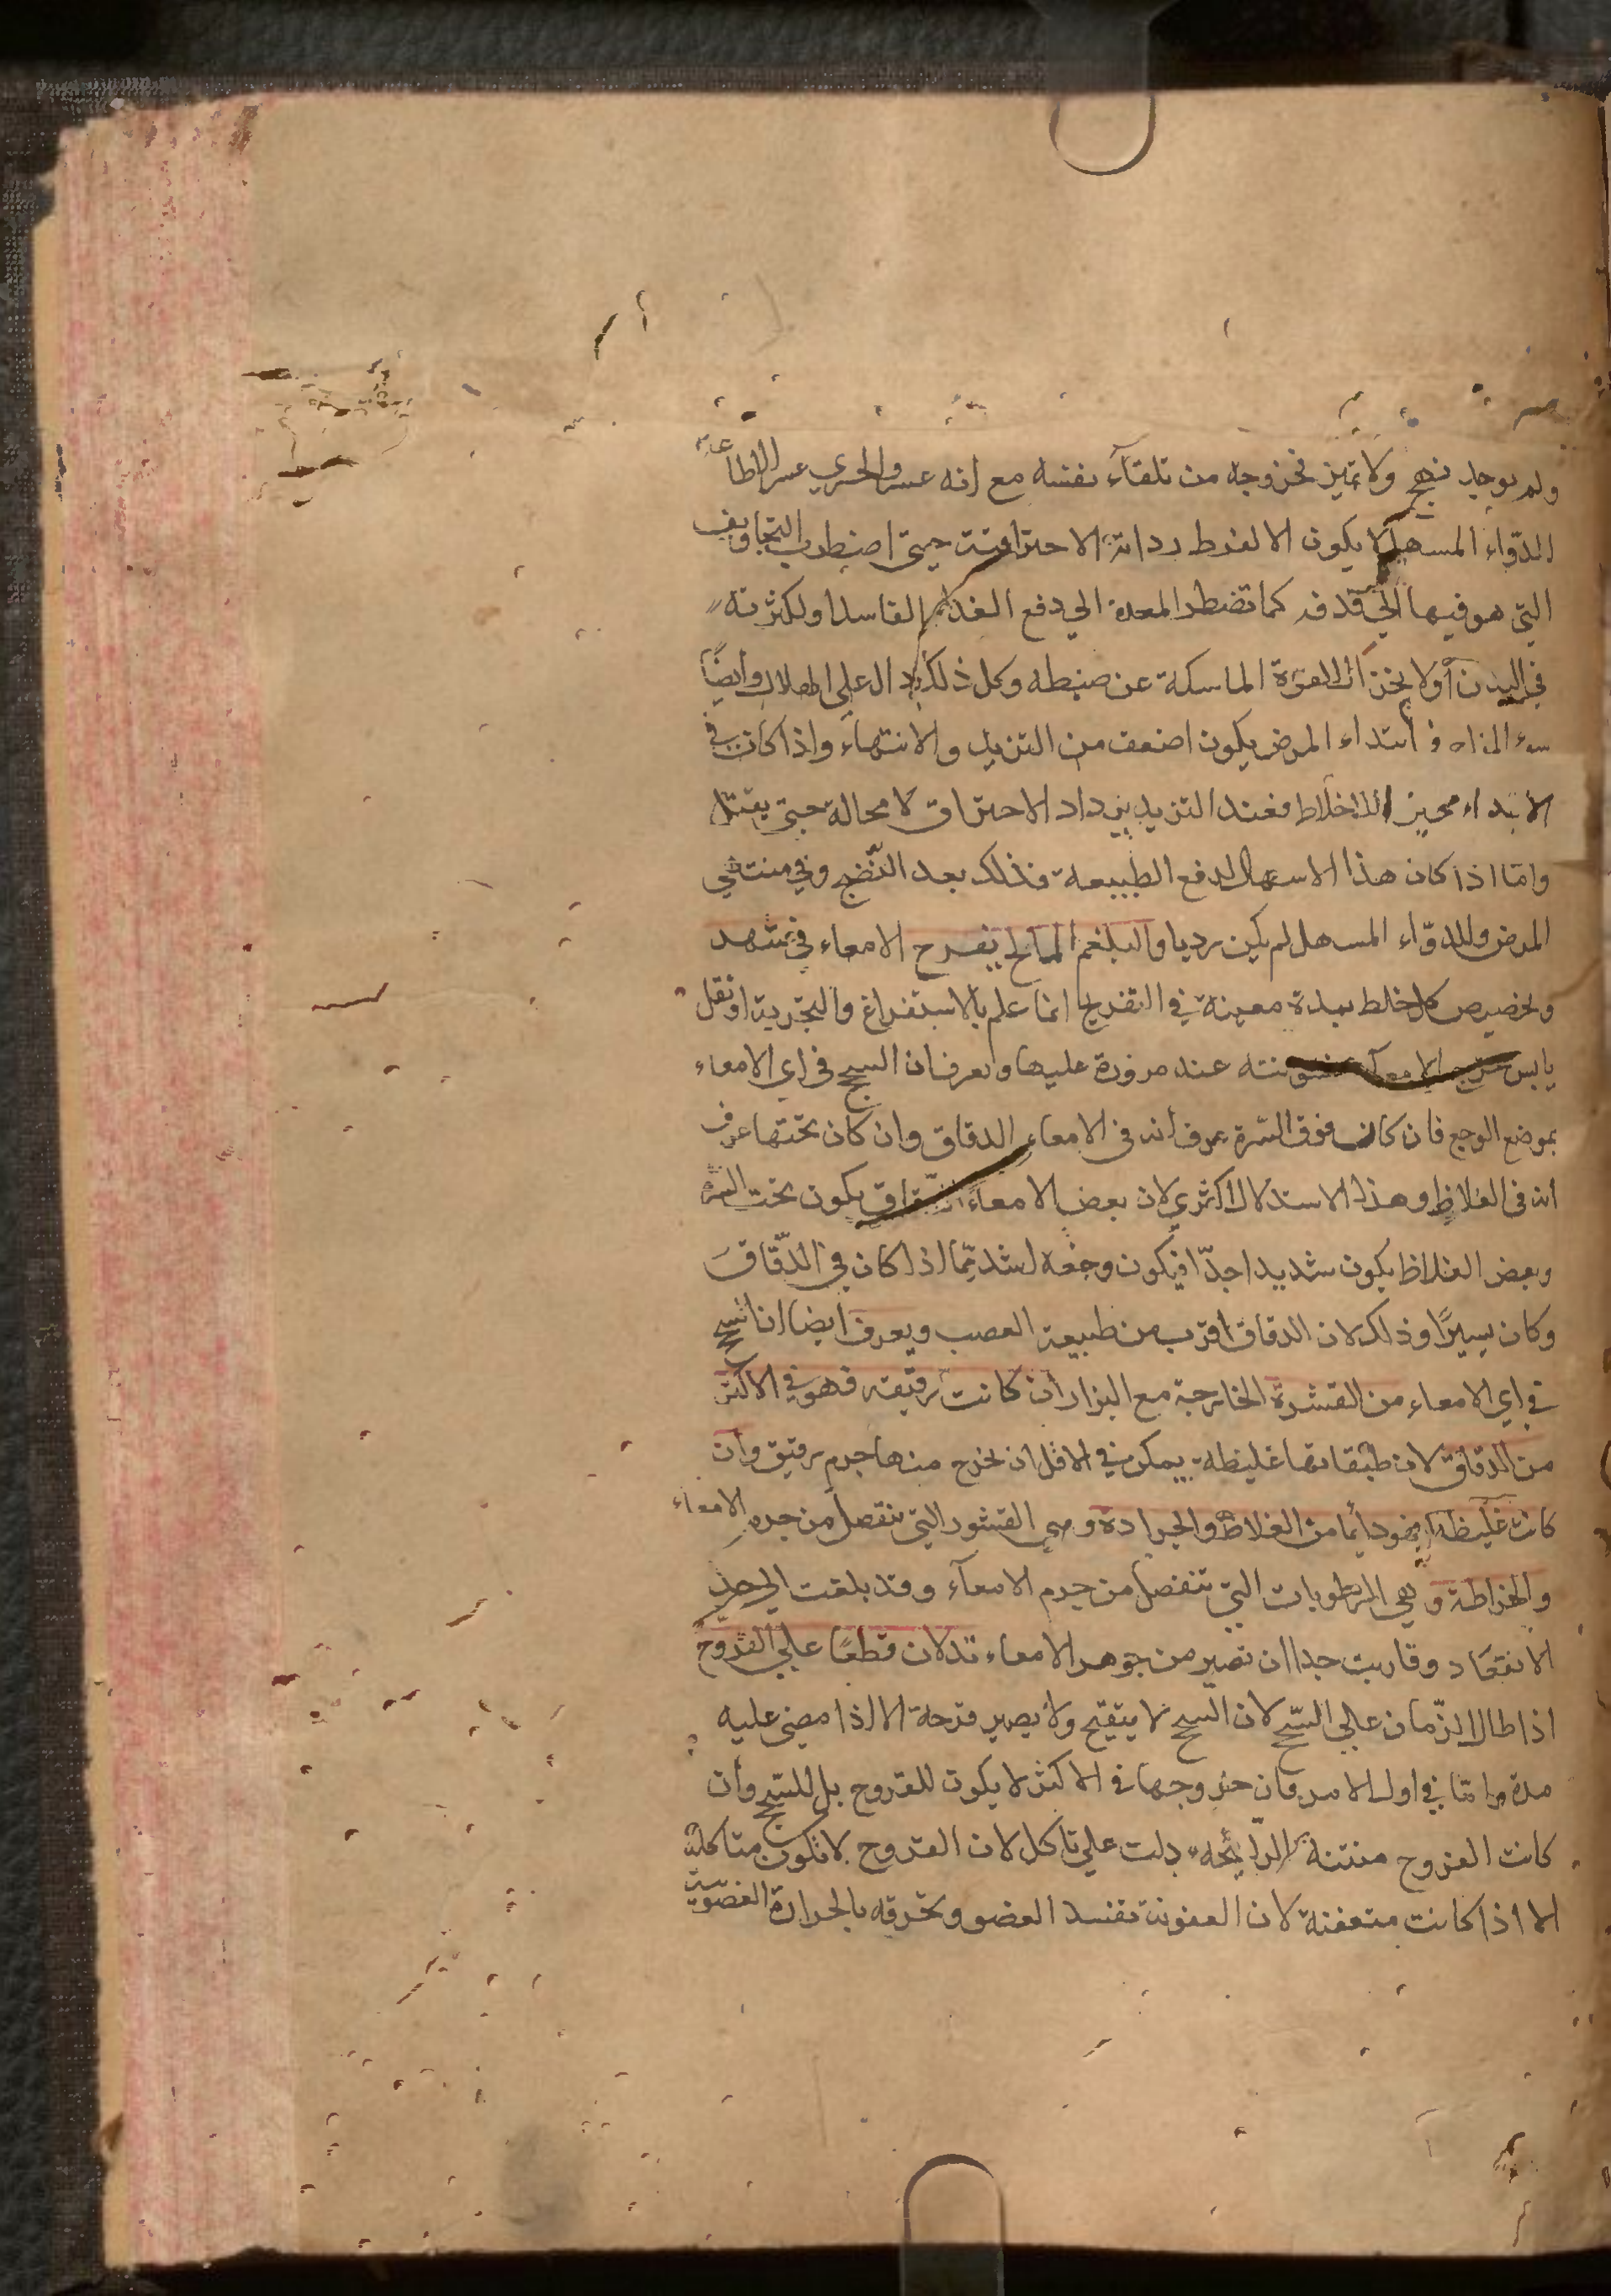 ولم يوجد نضج ولا تميز فخروجه من تلقآء نفسه مع انه عسر الجري عسر الاطاعة
الدّواء المسهل لا يكون الا لفرط رداءة الاحتراقية حيتى اضطرب التجاويف
التي هو فيها الي قدفه كما تضطر المعدة الي دفع الغذآء الفاسد او لكثرته
في البدن أولا بخزال القوة الماسكة عن ضبطه وكل ذلك دال علي الهلاك وأيضًا
سوء المزاج في ابتداء المرض يكون اضعف من التزيد والانتهآء واذا كان في
الابتداء محيز الاخلاط فعند التزيد يزداد الاحتراق لا محالة حيتى يقتل
وامّا اذا كان هذا الاسهال لدفع الطبيعة فذلك بعد النّضج وفي منتهي
المرض وللدوّاء المسهل لم يكن رديا والبلغم المالح يقرح الامعاء في شهر
وتخصيص كل خلط بمدة معينة في التقريح انما علم بالاستقراغ والتجربة او ثقل
يابس عند مروره عليها ويعرف ان السحج في اي الامعاء
بموضع الوجع فان كان فوق السّرة عرف أنه في الامعاء الدقاق وان كان تحتها عرف
انه في الغلاظ وهذا الاستدلال اكثري لان بعض الامعاء الدقاق يكون تحت السرة
وبعض الغلاظ يكون شديدا جدّا فيكون وجعه اشد ممّا اذا كان في الدّقاق
وكان يسيرًا وذلك لان الدقاق اقرب من طبيعة العصب ويعرف ايضا ان السحج
في اي الامعاء من القشرة الخارجة مع البراز ان كانت رقيقه فهو في الاكثر
من الدقاق لان طبقاتها غليظة يمكن في الاقل ان يخرج منها جرم رقيق وان
كانت غليظه فهو دايما من الغلاظ والجرادة وهي القشور التي تنفصل من جرم الامعاء
والخراطة وهي الرطوبات التي تنفصل من جرم الامعآء وقد بلغت الي حد
الانعقاد وقاربت جدا ان تصير من جوهر الامعاء تدلان قطعًا علي القروح
اذا طال الزّمان علي السّحج لان السحج لا يتقيح ولا يصير قرحة الا اذا مضي عليه
مدة وامّا في اول الامر فان خروجها في الاكثر لا يكون للقروح بل للسّحج وأن
كانت القروح منتنة الرّايحه دلت علي تاكل لان القروح لا تكون متاكلة
الا اذا كانت متعفنة لان العفونة تفسد العضو وتحرقه بالحرارة العضوية